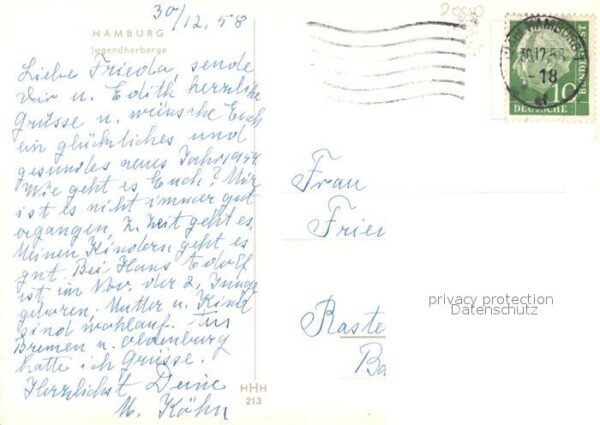 30/12.58
HAMBURG
Jugendherberge
Liebe Frieda, sende
Dir u. Edith herzliche
Grüsse u. wünsche Euch
ein glückliches und
gesundes neues Jahr 1959
Wie geht es Euch? Mir
ist es nicht immer gut
ergangen, z. Zeit geht es,
Meinen Kindern geht es
gut. Bei Hans Adolf
ist im Nov. der 2. Junge
geboren, Mutter u. Kind
sind wohlauf. Für
Bremen u. Oldenburg
hätte ich Grüsse.
Herzlichst Deine
M. Köhn
HHH
213
2000
HAMBURG
30.12.58
18
10
DEUTSCHE
BUNDESPOST
Frau
Frie
Raste
Ba
privacy protection
Datenschutz